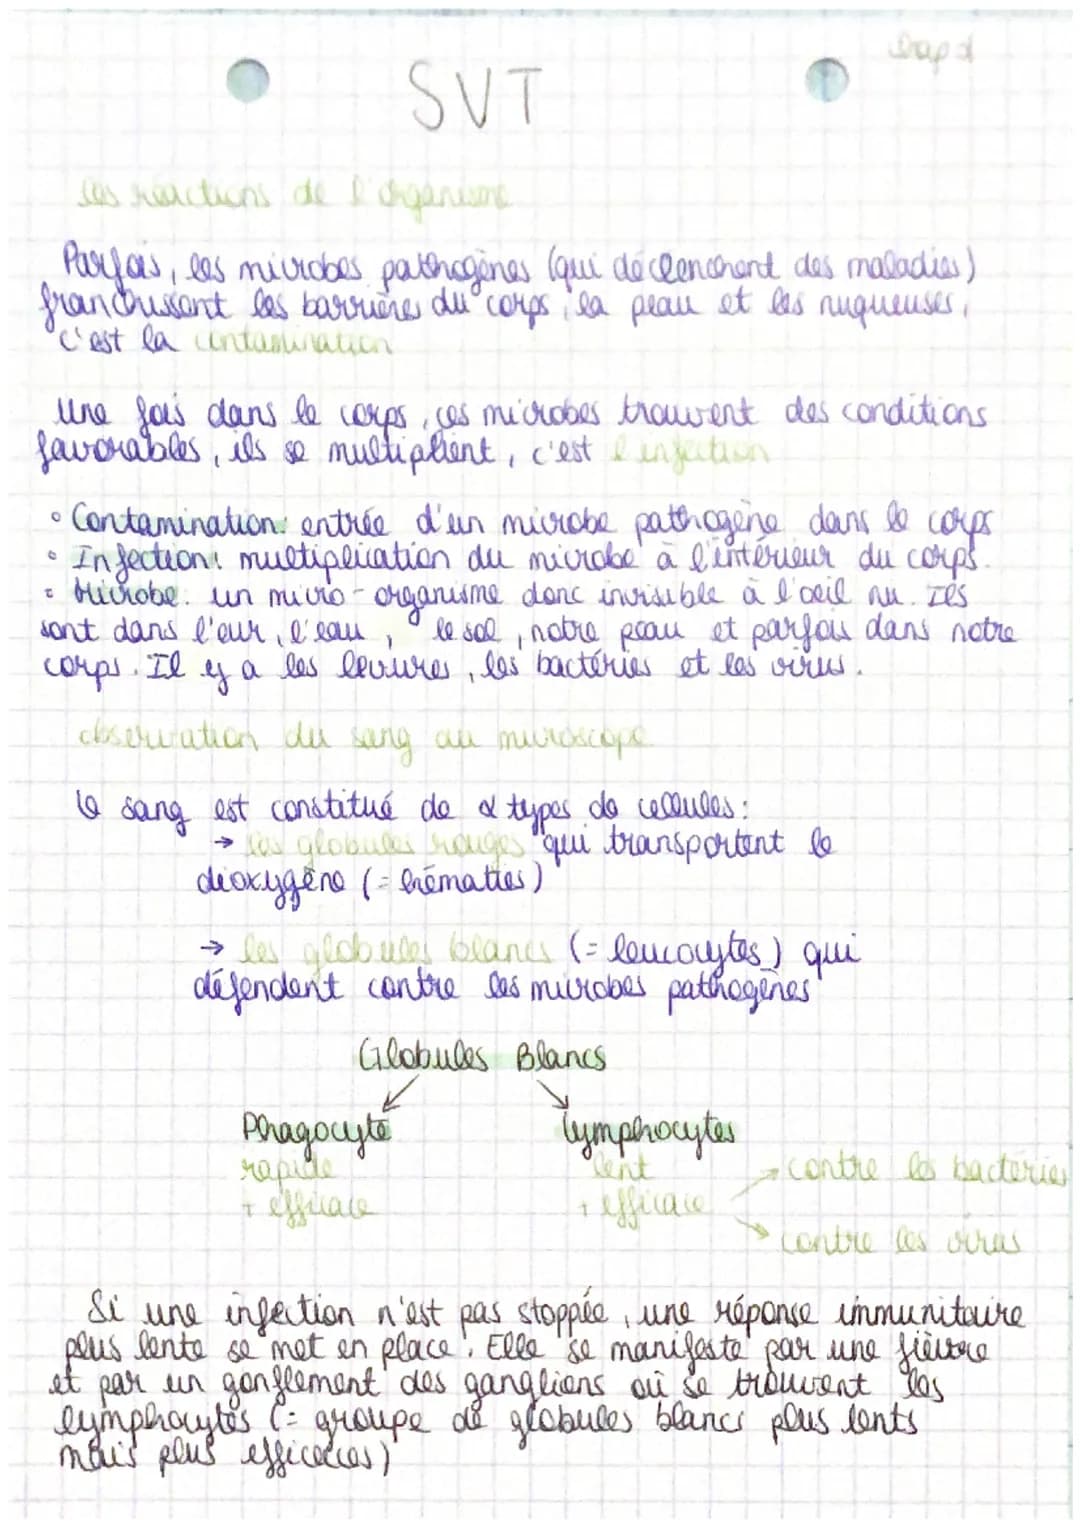 Chap 1
SVT
les réactions de l'organisme
Parfois, les microbes pathogènes (qui déclenchent des maladies)
franchissent les barrières du corps, la peau et les muqueuses,
c'est la contamination
Une fois dans le corps, ces microbes trouvent des conditions
favorables, ils se multiplient, c'est l'infection
• Contamination: entrée d'un microbe pathogène dans le corps
• Infection: multiplication du microbe à l'intérieur du corps.
• Microbe: un micro-organisme donc invisible à l'œil nu. Ils
sont dans l'eur, l'eau, le sol, notre peau et parfois dans notre
corps. Il y a les levures, les bactéries et les virus.
observation du sang au microscope
le sang est constitué de 2 types de cellules:
→ les globules rouges qui transportent le
dioxygène (= hématies)
→ les globules blancs (= leucocytes) qui
défendent contre les microbes pathogènes
Globules Blancs
Phagocyte lymphocytes
rapide lent → contre les bactéries
+ efficace + efficace
→ contre les virus
Si une infection n'est pas stoppée, une réponse immunitaire
plus lente se met en place. Elle se manifeste par une fièvre
et par un gonflement des ganglions où se trouvent les
lymphocytes (= groupe de globules blancs plus lents
mais plus efficaces)